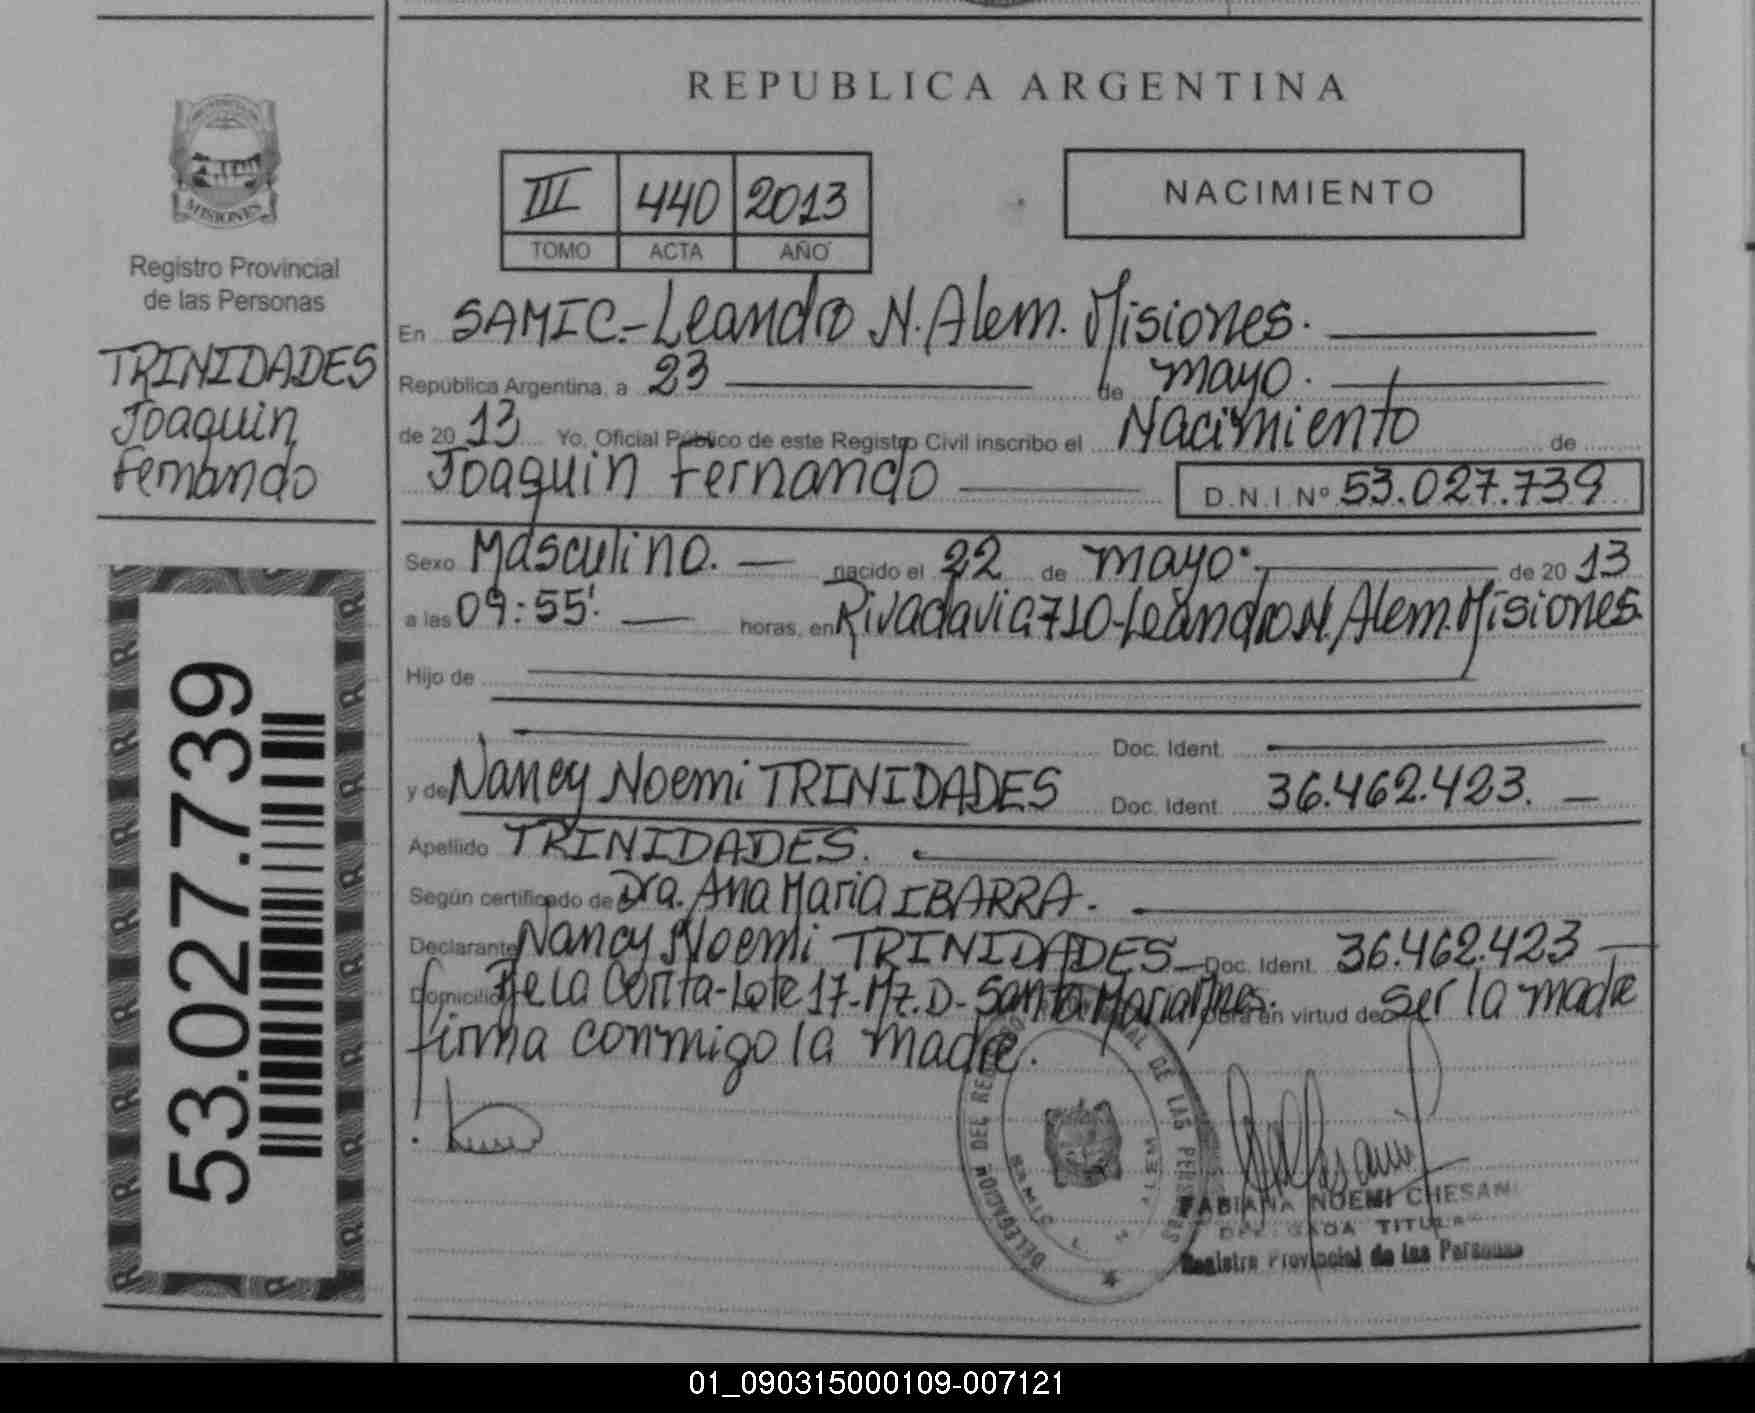 REPUBLICA ARGENTINA
MISIONES
Registro Provincial
de las Personas
TRINIDADES
Joaquin
Fernando
53.027.739
III 440 2013
TOMO ACTA AÑO
NACIMIENTO
En SAMIC.-Leandro N. Alem. Misiones.
República Argentina, a 23 de mayo.
de 20 13 Yo, Oficial Público de este Registro Civil inscribo el Nacimiento de
Joaquin Fernando D.N.I. Nº 53.027.739
Sexo Masculino. nacido el 22 de mayo. de 20 13
a las 09:55'. horas, en Rivadavia 710-Leandro N. Alem. Misiones.
Hijo de
Doc. Ident.
y de Nancy Noemi TRINIDADES Doc. Ident. 36.462.423.
Apellido TRINIDADES.
Según certificado de Dra. Ana Maria IBARRA.
Declarante Nancy Noemi TRINIDADES Doc. Ident. 36.462.423
Domicilio La -Lote 17-Mz. D- Santa Maria Mnes. Obra en virtud de Ser la madre
firma conmigo la madre.
DELEGACION DEL REGISTRO DE LAS PERSONAS
SAMIC
FABIANA NOEMI CHESANI
DELEGADA TITULAR
Registro Provincial de las Personas
01_090315000109-007121